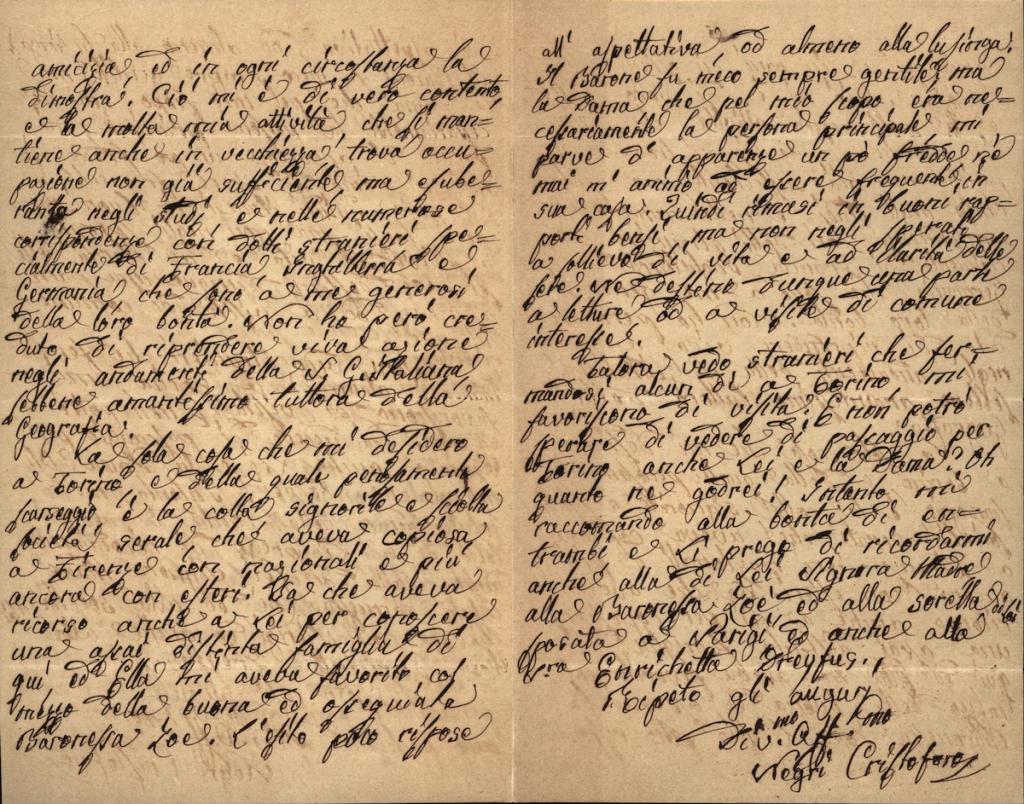 amicizia ed in ogni circostanza la
dimostrai. Ciò mi è di vero contento
e la molta mia attività che si man=
tiene anche in vecchiezza trova occu=
pazione non già sufficiente, ma esube=
rante negli studj e nelle numerose
corrispondenze con dotti stranieri spe=
cialmente di Francia, Inghilterra e
Germania che sono a me generosi
della loro bontà. Non ho però cre=
duto di riprendere viva azione
negli andamenti della S. G. Italiana
sebbene amantissimo tuttora della
Geografia.
La sola cosa che mi desidero
a Torino e della quale penosamente
scarseggio è la colta signorile e scelta
società serale che aveva copiosa
a Firenze con nazionali e più
ancora con esteri. Ed è che aveva
ricorso anche a Lei per conoscere
una assai distinta famiglia di
qui ed Ella mi aveva favorito col
mezzo della buona ed ossequiata
Baronessa Zoe. L'esito poco rispose
all'aspettativa od almeno alla lusinga.
Il Barone fu meco sempre gentile, ma
la Dama che pel mio scopo era ne=
cessariamente la persona principale mi
parve di apparenze un pò fredde nè
mai m'animò ad essere frequente in
sua casa. Quindi rimasi in buoni rap=
porti bensì ma non negli sperati
a sollievo di vita e ad ilarità delle
sere. Ne destino dunque una parte
a letture od a visite di comune
interesse.
Talora vedo stranieri che fer=
mandosi alcuni dì a Torino mi
favoriscono di visita. E non potrò
sperare di vedere di passaggio per
Torino anche Lei e la Dama? Oh
quanto ne godrei! Intanto mi
raccomando alla bontà di en=
trambi e La prego di ricordarmi
anche alla di Lei Signora Madre
alla Baronessa Zoe ed alla sorella di Lei
sposata a Parigi ed anche alla
Sra Enrichetta Dreyfus.
Ripeto gli augurj
Div.mo Aff.mo
Negri Cristoforo